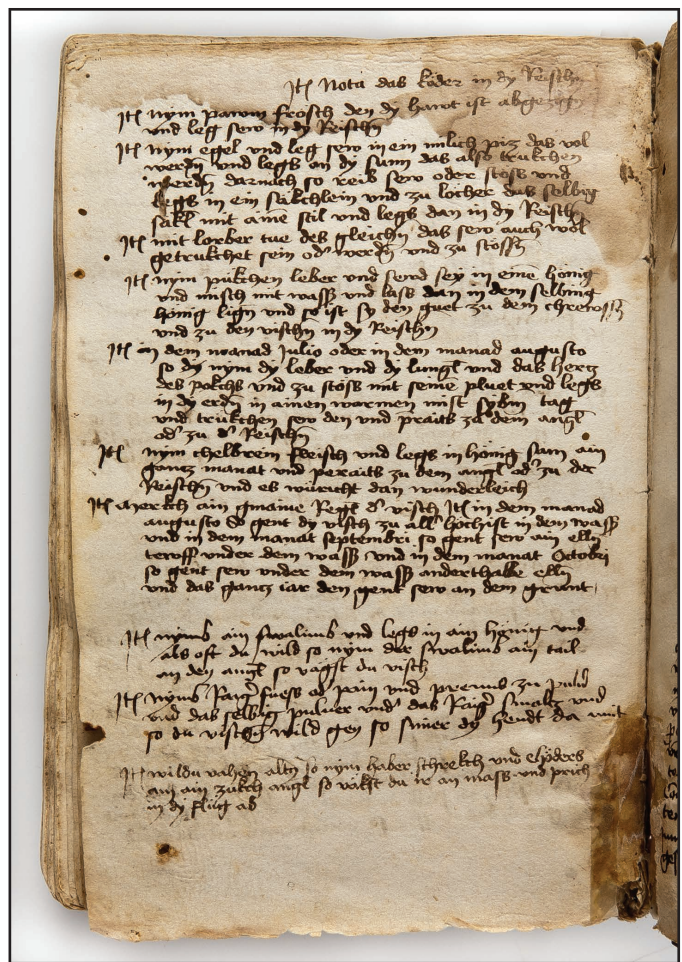 Itē Nota das köder in dy Reischn
Itē nym pawm frosch den dy hawt ist abgezogn
und leg sew in dy Reischn
Itē nym egel und leg sew in ein milich piz das vol
werdn und legs an dy sunn das also trukchen
werdn darnach so reib sew oder stoss und
legs in ein säkchlein und zu löcher das selbig
säkl mit aine stil und legss dan in dy Reisch
Itē mit lorber tue des gleichn das sew auch wol
getrukchet sein od' werdn und zu stossn
Itē nym pükchen leber und sewd sey in eine hönig
und misch mit wass und lass dan in dem selbing
hönig lign und so ist sy den guet zu dem chrewssn
und zu den vischn in dy Reischn
Itē in dem manad Julio oder in dem manad augusto
so dy nym dy leber und dy lungl und das hertz
des pokchs und zu stoss mit seine pluet und legs
in dy erdn in ainen warmen mist sybm tag
und trukchen sew den und praits zu dem angl
od' zu d' Reischn
Itē nym chelbrein fleisch und legs in hönig sam ain
gantz manat und peraits zu dem angl od' zu der
Reischn und es würcht dan wunderleich
Itē merkch ain gmaine Regl d' visch Itē in dem manad
augusto So gent dy visch zu all' höchist in dem wass
und in dem manat septembri so gent sew ain elln
tewff under dem wass und in dem manat Octobri
so gent sew under dem wass anderthalbe elln
und das gantz iar den gent sew an dem grunt
Itē nyms ain swalims und legs in ain hönig und
als oft du wild so nym der swalims ain tail
an den angl so vägst du visch
Itē nyms Raig' fuess od' pain und prenns zu pulu'
und das selbig puluer und' das Raig' smaltz und
so du vischn wild gen so smier dy hendt da mit
Itē wildu vahen altn so nym haber schrekch und
an ain zukch angl so vächst du ir an mass und prich
in dy flüg ab